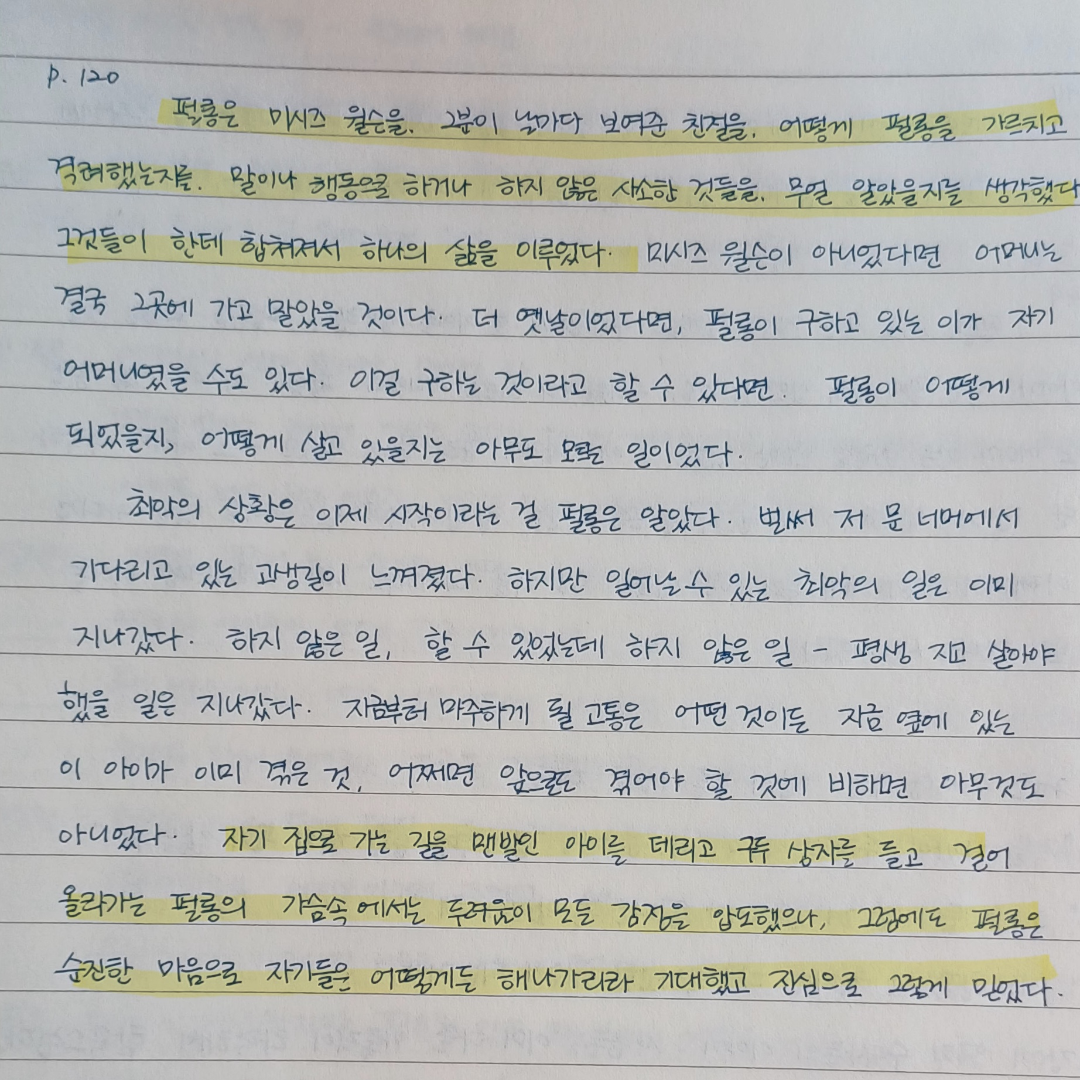 p. 120
펄롱은 미시즈 윌슨을. 그분이 날마다 보여준 친절을. 어떻게 펄롱을 가르치고
격려했는지를. 말이나 행동으로 하거나 하지 않은 사소한 것들을. 무얼 알았을지를 생각했다
그것들이 한데 합쳐져서 하나의 삶을 이루었다. 미시즈 윌슨이 아니었다면 어머니는
결국 그곳에 가고 말았을 것이다. 더 옛날이었다면, 펄롱이 구하고 있는 이가 자기
어머니였을 수도 있다. 이걸 구하는 것이라고 할 수 있다면. 펄롱이 어떻게
되었을지, 어떻게 살고 있을지는 아무도 모르는 일이었다.
최악의 상황은 이제 시작이라는 걸 펄롱은 알았다. 벌써 저 문 너머에서
기다리고 있는 고생길이 느껴졌다. 하지만 일어날 수 있는 최악의 일은 이미
지나갔다. 하지 않은 일, 할 수 있었는데 하지 않은 일 - 평생 지고 살아야
했을 일은 지나갔다. 지금부터 마주하게 될 고통은 어떤 것이든 지금 옆에 있는
이 아이가 이미 겪은 것, 어쩌면 앞으로도 겪어야 할 것에 비하면 아무것도
아니었다. 자기 집으로 가는 길을 맨발인 아이를 데리고 구두 상자를 들고 걸어
올라가는 펄롱의 가슴속에서는 두려움이 모든 감정을 압도했으나, 그럼에도 펄롱은
순진한 마음으로 자기들은 어떻게든 해나가리라 기대했고 진심으로 그렇게 믿었다.